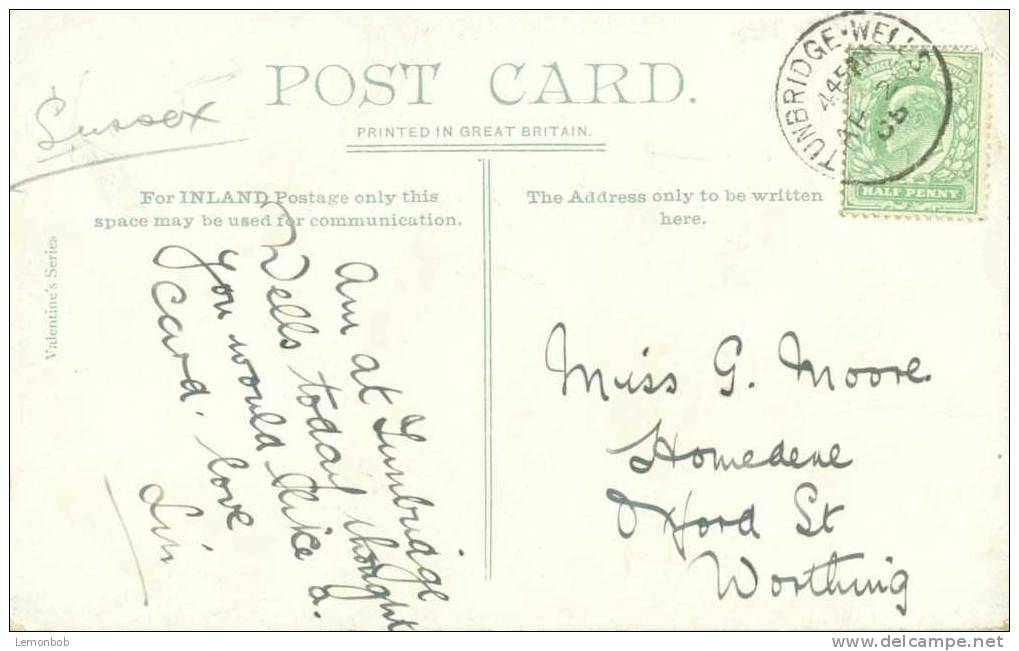 POST CARD.
PRINTED IN GREAT BRITAIN.
Sussex
For INLAND Postage only this
space may be used for communication.
The Address only to be written
here.
Valentine's Series
TUNBRIDGE·WELLS
445PM
HALF PENNY
Am at Tunbridge
Wells today thought
you would like a
card. love
Lin
Miss G. Moore.
Homedene
Oxford St
Worthing
Lemonbob
www.delcampe.net